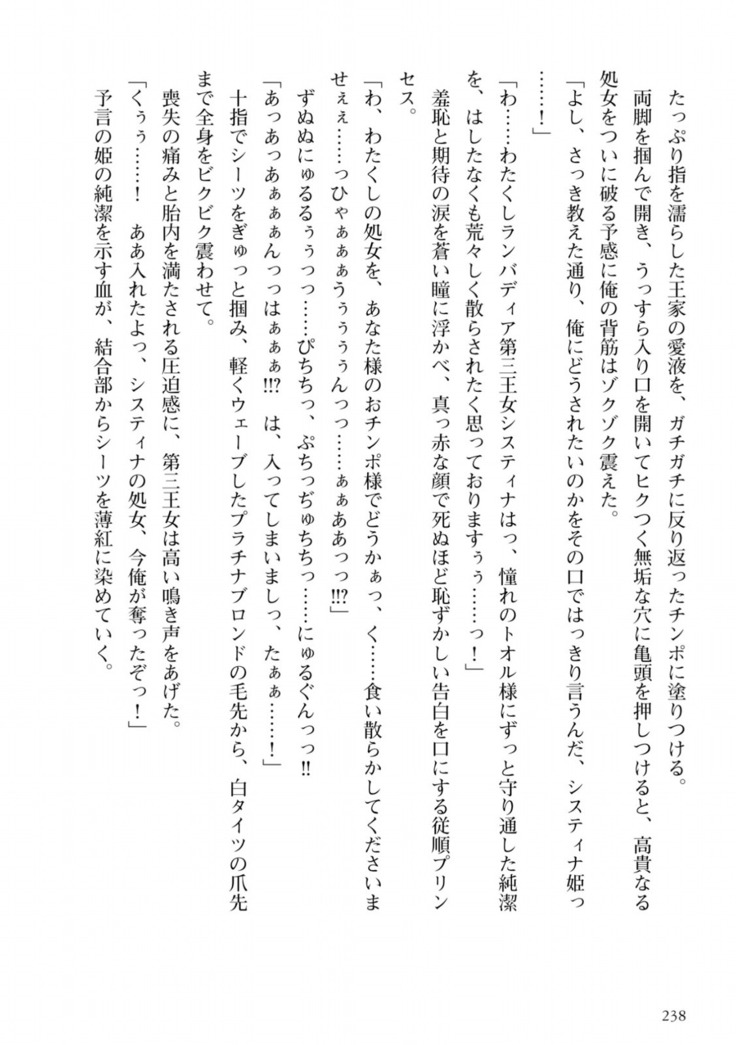 たっぷり指を濡らした王家の愛液を、ガチガチに反り返ったチンポに塗りつける。
両脚を掴んで開き、うっすら入り口を開いてヒクつく無垢な穴に亀頭を押しつけると、高貴なる
処女をついに破る予感に俺の背筋はゾクゾク震えた。
「よし、さっき教えた通り、俺にどうされたいのかをその口ではっきり言うんだ、システィナ姫っ
……！」
「わ……わたくしランバディア第三王女システィナはっ、憧れのトオル様にずっと守り通した純潔
を、はしたなくも荒々しく散らされたく思っておりますぅぅ……っ！」
羞恥と期待の涙を蒼い瞳に浮かべ、真っ赤な顔で死ぬほど恥ずかしい告白を口にする従順プリン
セス。
「わ、わたくしの処女を、あなた様のおチンポ様でどうかぁっ、く……食い散らかしてくださいま
せぇぇ……っひゃぁぁぁうぅぅぅぅんっっ……ぁぁああっっ!!?」
ずぬぬにゅるるぅぅっっ……ぴちちっ、ぷちっぢゅちちっ……にゅるぐんっっ!!
「あっあっあぁぁぁんっっはぁぁぁ!!?　は、入ってしまいましっ、たぁぁ……！」
十指でシーツをぎゅっと掴み、軽くウェーブしたプラチナブロンドの毛先から、白タイツの爪先
まで全身をビクビク震わせて。
喪失の痛みと胎内を満たされる圧迫感に、第三王女は高い鳴き声をあげた。
「くぅぅ……！　ああ入れたよっ、システィナの処女、今俺が奪ったぞっ！」
予言の姫の純潔を示す血が、結合部からシーツを薄紅に染めていく。
238